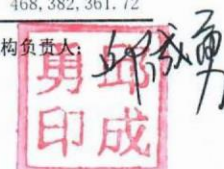 468,382,361.72
构负责人：
邱成勇
邱成
勇印